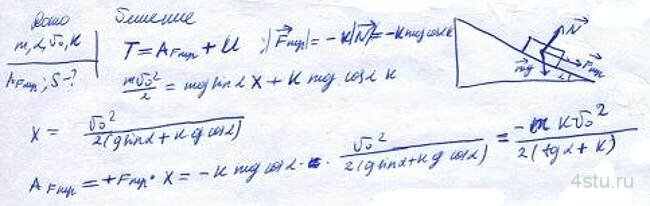 Дано
Решение
m, α, v₀, k
A Fтр; S-?
T = A Fтр + U ; |F⃗тр| = -k|N⃗| = -kmg cosα
mv₀²/2 = mg sinα x + k mg cosα x
x = v₀²/2(g sinα + k g cosα)
A Fтр = +Fтр · x = -k mg cosα · v₀²/2(g sinα + k g cosα) = -m k v₀²/2(tgα + k)
N⃗
mg⃗
F⃗тр
α
4stu.ru